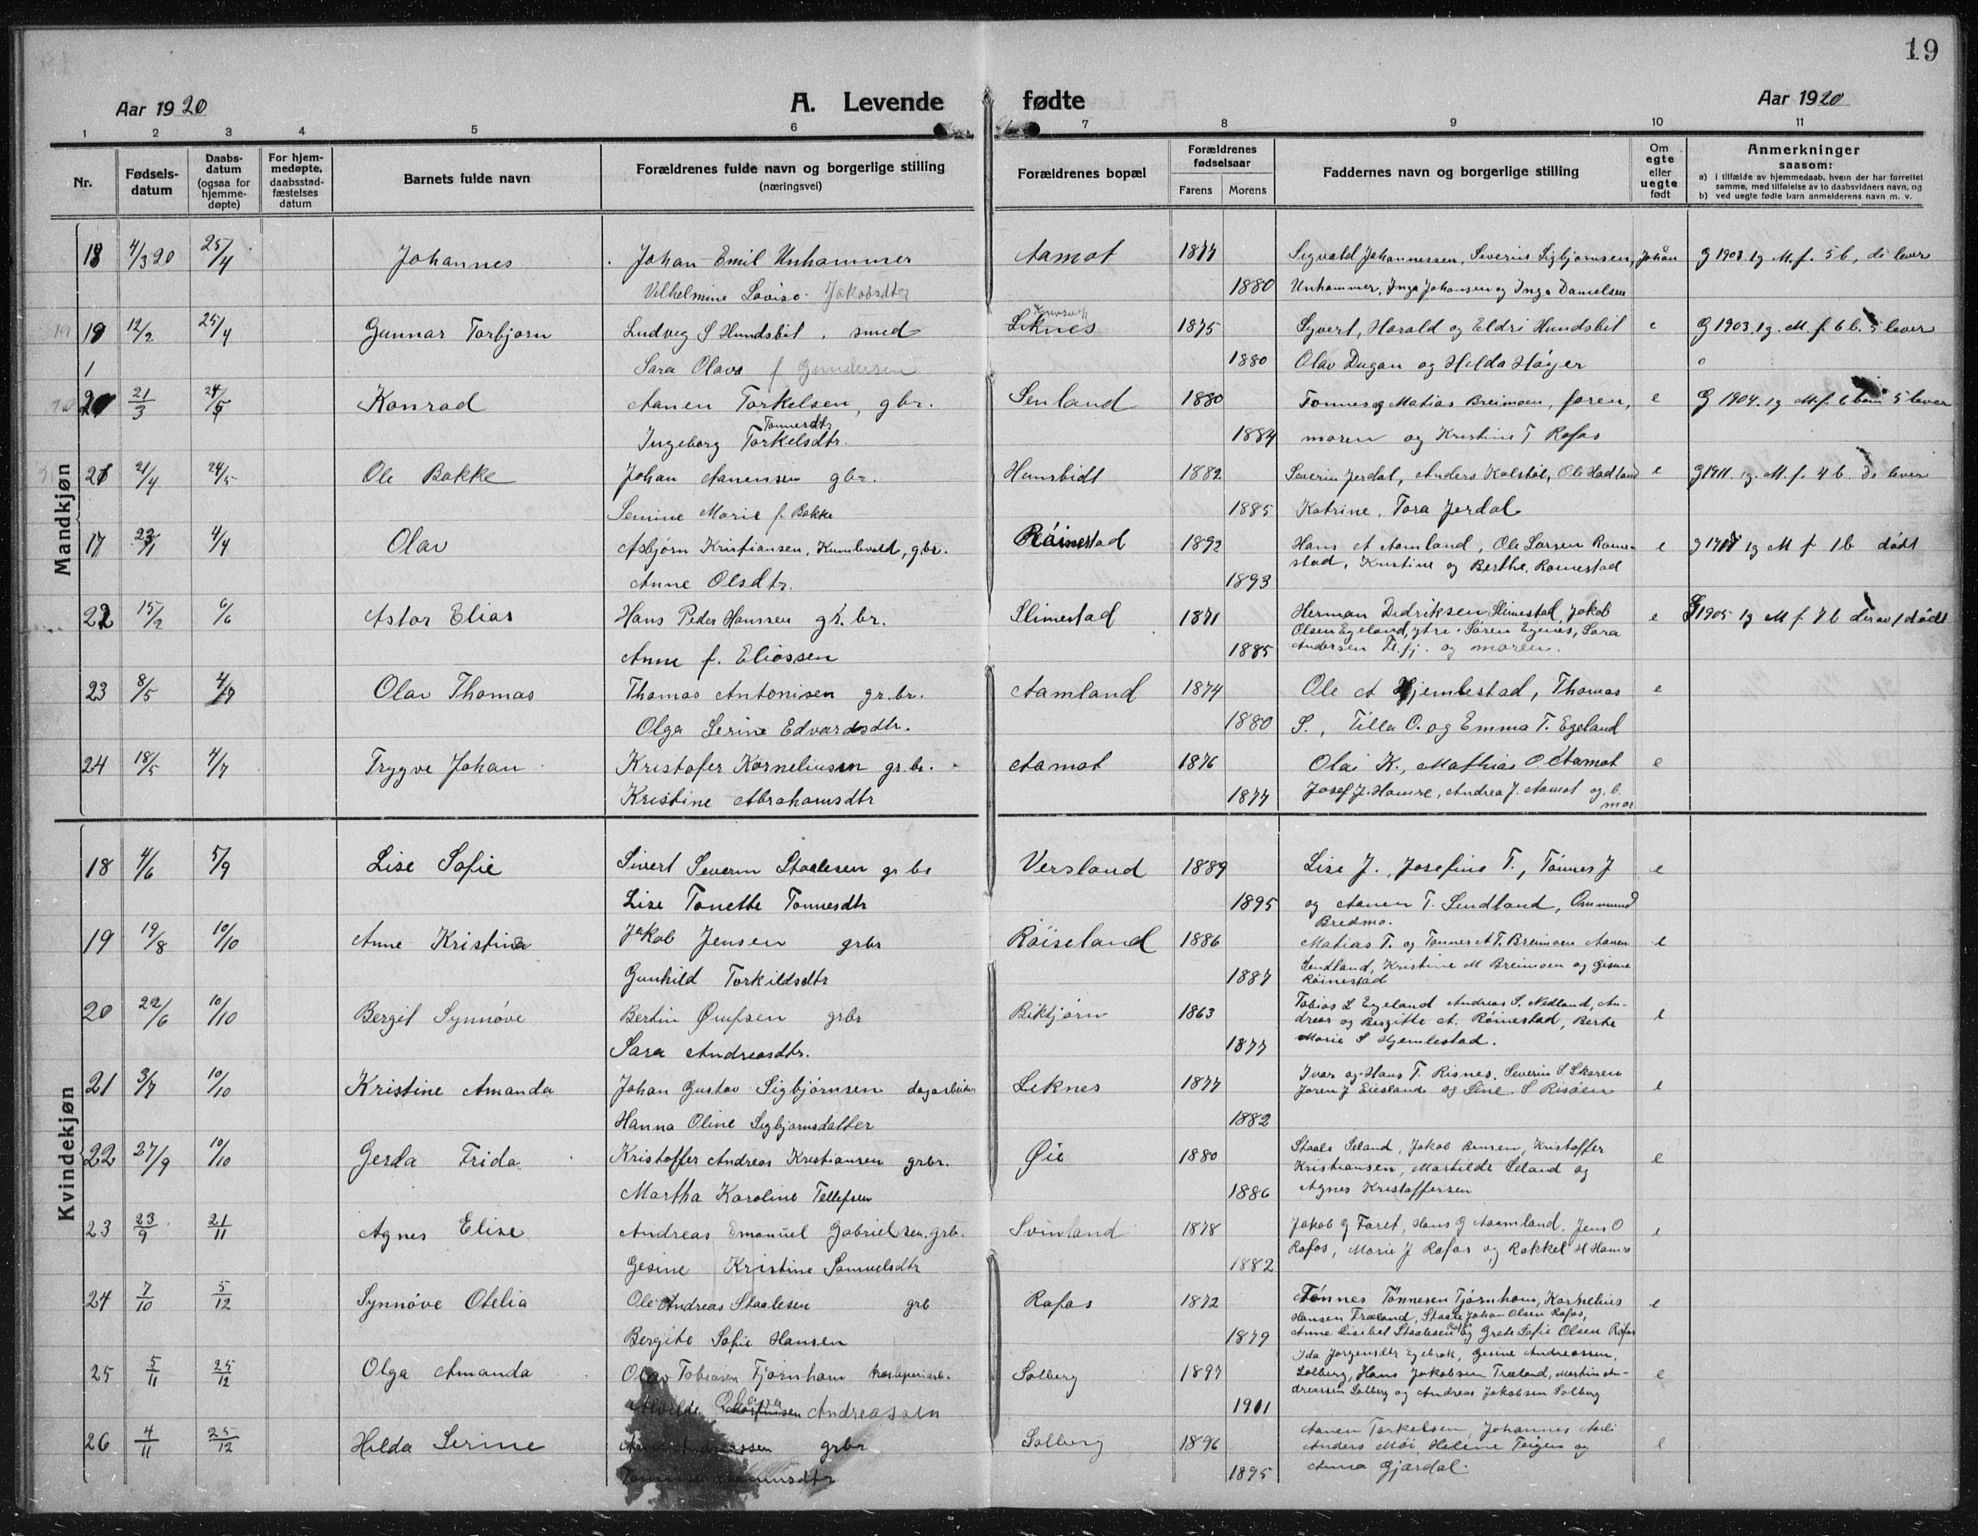 19
Aar 1920 A. Levende fødte Aar 1920
1 2 3 4 5 6 7 8 9 10 11
Nr.
Fødsels-
datum
Daabs-
datum
(ogsaa for
hjemme-
døpte)
For hjem-
medøpte,
daabsstad-
fæstelses
datum
Barnets fulde navn
Forældrenes fulde navn og borgerlige stilling
(næringsvei)
Forældrenes bopæl
Forældrenes
fødselsaar
Farens Morens
Faddernes navn og borgerlige stilling
Om
egte
eller
uegte
født
Anmerkninger
saasom:
a) i tilfælde av hjemmedaab, hvem der har forrettet
samme, med tilføielse av to daabsvidners navn, og
b) ved uegte fødte barn anmelderens navn m. v.
Mandkjøn
18 4/3 20 25/4 Johannes Johan Emil Unhammer Aamot 1877 Sigvald Johannessen, Severin Sigbjørnsen, Johan G 1903. 1g M. f. 5 b, de lever
Vilhelmine Lovise Jakobsdtr 1880 Unhammer, Inga Johansen og Inga Danielsen
19 12/2 25/4 Gunnar Torbjørn Ludvig S Hundsbit, smed Leknes 1875 Syvert, Harald og Eldri Hundsbit e G 1903. 1g. M. f. 6 b. 5 lever
Sara Olava f Gundersen 1880 Olav Dugan og Hilda Høyer
20 21/3 24/5 Konrad Aanen Torkelsen, gbr. Senland 1880 Tønnes og Matias Breimoen, faren, e G 1904. 1g M. f. 6 barn 5 lever
Ingeborg Tønnesdtr Torkelsdtr. 1884 moren og Kristine T Rafos
21 21/4 24/5 Ole Bakke Johan Aanensen gbr. Hunsbidt 1882 Severin Jerdal, Anders Kalstøl, Ole Hadland e G 1911. 1g. M. f. 4 b. de lever
Semine Marie f. Bakke 1885 Katrine, Tora Jerdal
17 23/1 4/4 Olav Asbjørn Kristiansen, Kumlevold, gbr. Røinestad 1892 Hans A Aamland, Ole Larsen Røine- e 1g M f 1 b dødt
Anne Olsdtr. 1893 stad, Kristine og Berthe Røinestad
22 15/2 6/6 Astor Elias Hans Peder Hanssen gr. br. Slimestad 1871 Herman Didriksen Slimestad, Jakob e G 1905 1g M f 7 b derav 1 dødt
Olsen Egeland, ytre. Søren Egenes, Sara
Anne f. Eliassen 1885 Andersen Fl.fj. og moren.
23 8/5 4/7 Olav Thomas Thomas Antonisen gr. br. Aamland 1874 Ole A Hjemlestad, Thomas e
Olga Serine Edvardsdtr. 1880 S., Tilla O. og Emma T. Egeland
24 18/5 4/7 Trygve Johan Kristofer Korneliusen gr. br. Aamot 1876 Olai K., Mathias O. Aamot e
Kristine Abrahamsdtr 1877 Josef J. Hamre, Andrea J. Aamot og b.
mor
Kvindekjøn
18 4/6 5/9 Lise Sofie Sivert Severin Staalesen gr br Versland 1889 Lise J., Josefine T., Tønnes J e
Lise Tonette Tønnesdtr 1895 og Aanen T. Sendland, Ommund
Bredmo.
19 19/8 10/10 Anne Kristine Jakob Jensen grbr Røiseland 1886 Matias T. og Tønnes A T. Breimoen Aanen e
Gunhild Torkildsdtr 1887 Sendland, Kristine M Breimoen og Gisine
Røinestad
20 22/6 10/10 Bergit Synnøve Bertin Ømfsen grbr Birkjørn 1863 Tobias L Egeland Andreas S. Nedland, An- e
dreas og Bergitte A. Røinestad, Berte
Sara Andreasdtr. 1877 Marie S Hjemlestad.
21 3/7 10/10 Kristine Amanda Johan Gustav Sigbjørnsen dagarbeider Leknes 1877 Ivar og Hans T. Risnes. Severin S Skaren e
Joren J Eiesland og Sine S Risøen
Hanna Oline Sigbjørnsdatter 1882
22 27/9 10/10 Gerda Frida Kristoffer Andreas Kristiansen grbr. Øie 1880 Staale Seland, Jakob Bensen, Kristoffer e
Kristiansen, Martilde Seland og
Martha Karoline Tellefsen 1886 Agnes Kristoffersen
23 23/9 21/11 Agnes Elise Andreas Emanuel Gabrielsen grbr. Svinland 1878 Jakob G Faret, Hans G Aamland, Jens O e
Rafos, Marie J Rafos og Rakkel H Hamre
Gesine Kristine Samuelsdtr 1882
24 7/10 5/12 Synnøve Otelia Ole Andreas Staalesen grb Rafos 1872 Tønnes Tønnesen Tjørnhom, Kornelius e
Hansen Træland, Staale Johan Olsen Rafos,
Bergite Sofie Hansen 1879 Anne Lisebet Staalesen og Grete Sofie Olsen Rafos
25 5/11 25/12 Olga Amanda Olav Tobiasen Tjørnhom Solberg 1897 Ida Jørgensdtr Egebrok, Gesine Andreassen, e
Solberg, Hans Jakobsen Træland, Martin An-
Alvilde Andreassen 1901 dreassen Solberg og Andreas Jakobsen Solberg
26 4/11 25/12 Hilda Serine Andreassen grbr Solberg 1896 Aanen Torkelsen, Johannes Aarli e
Anders Møi, Helene Teigen og
1895 Anna Gjærdal.